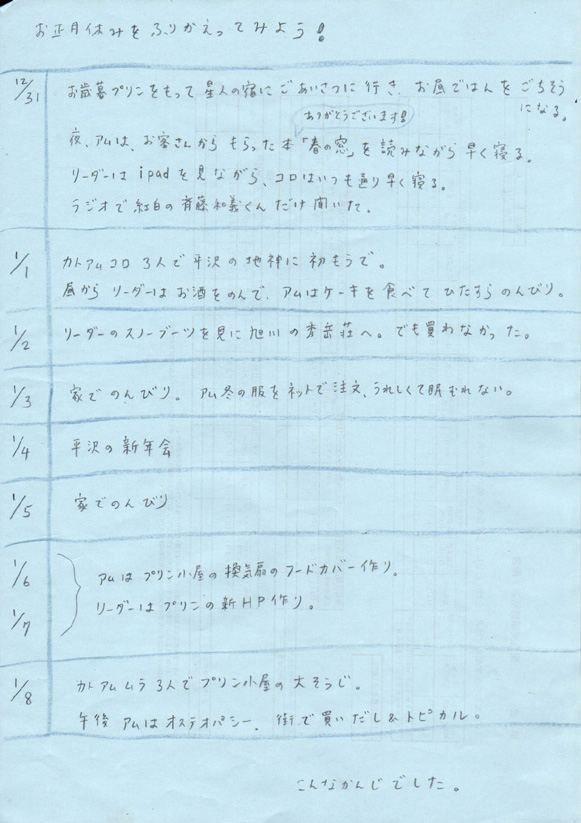 お正月休みをふりかえってみよう!
12/31 お歳暮プリンをもって星人の宿にごあいさつに行き、お昼ごはんをごちそう
になる。
ありがとうございます!!
夜、アムは、お客さんからもらった本「春の窓」を読みながら早く寝る。
リーダーはipadを見ながら、コロはいつも通り早く寝る。
ラジオで紅白の斉藤和義くんだけ聞いた。
1/1 カトアムコロ 3人で平沢の地神に初もうで。
昼からリーダーはお酒をのんで、アムはケーキを食べてひたすらのんびり。
1/2 リーダーのスノーブーツを見に旭川の秀岳荘へ。でも買わなかった。
1/3 家でのんびり。アム冬の服をネットで注文、うれしくて眠むれない。
1/4 平沢の新年会
1/5 家でのんびり
1/6 アムはプリン小屋の換気扇のフードカバー作り。
1/7 リーダーはプリンの新HP作り。
1/8 カトアムムラ 3人でプリン小屋の大そうじ。
午後 アムはオステオパシー、街で買いだし&トピカル。
こんなかんじでした。